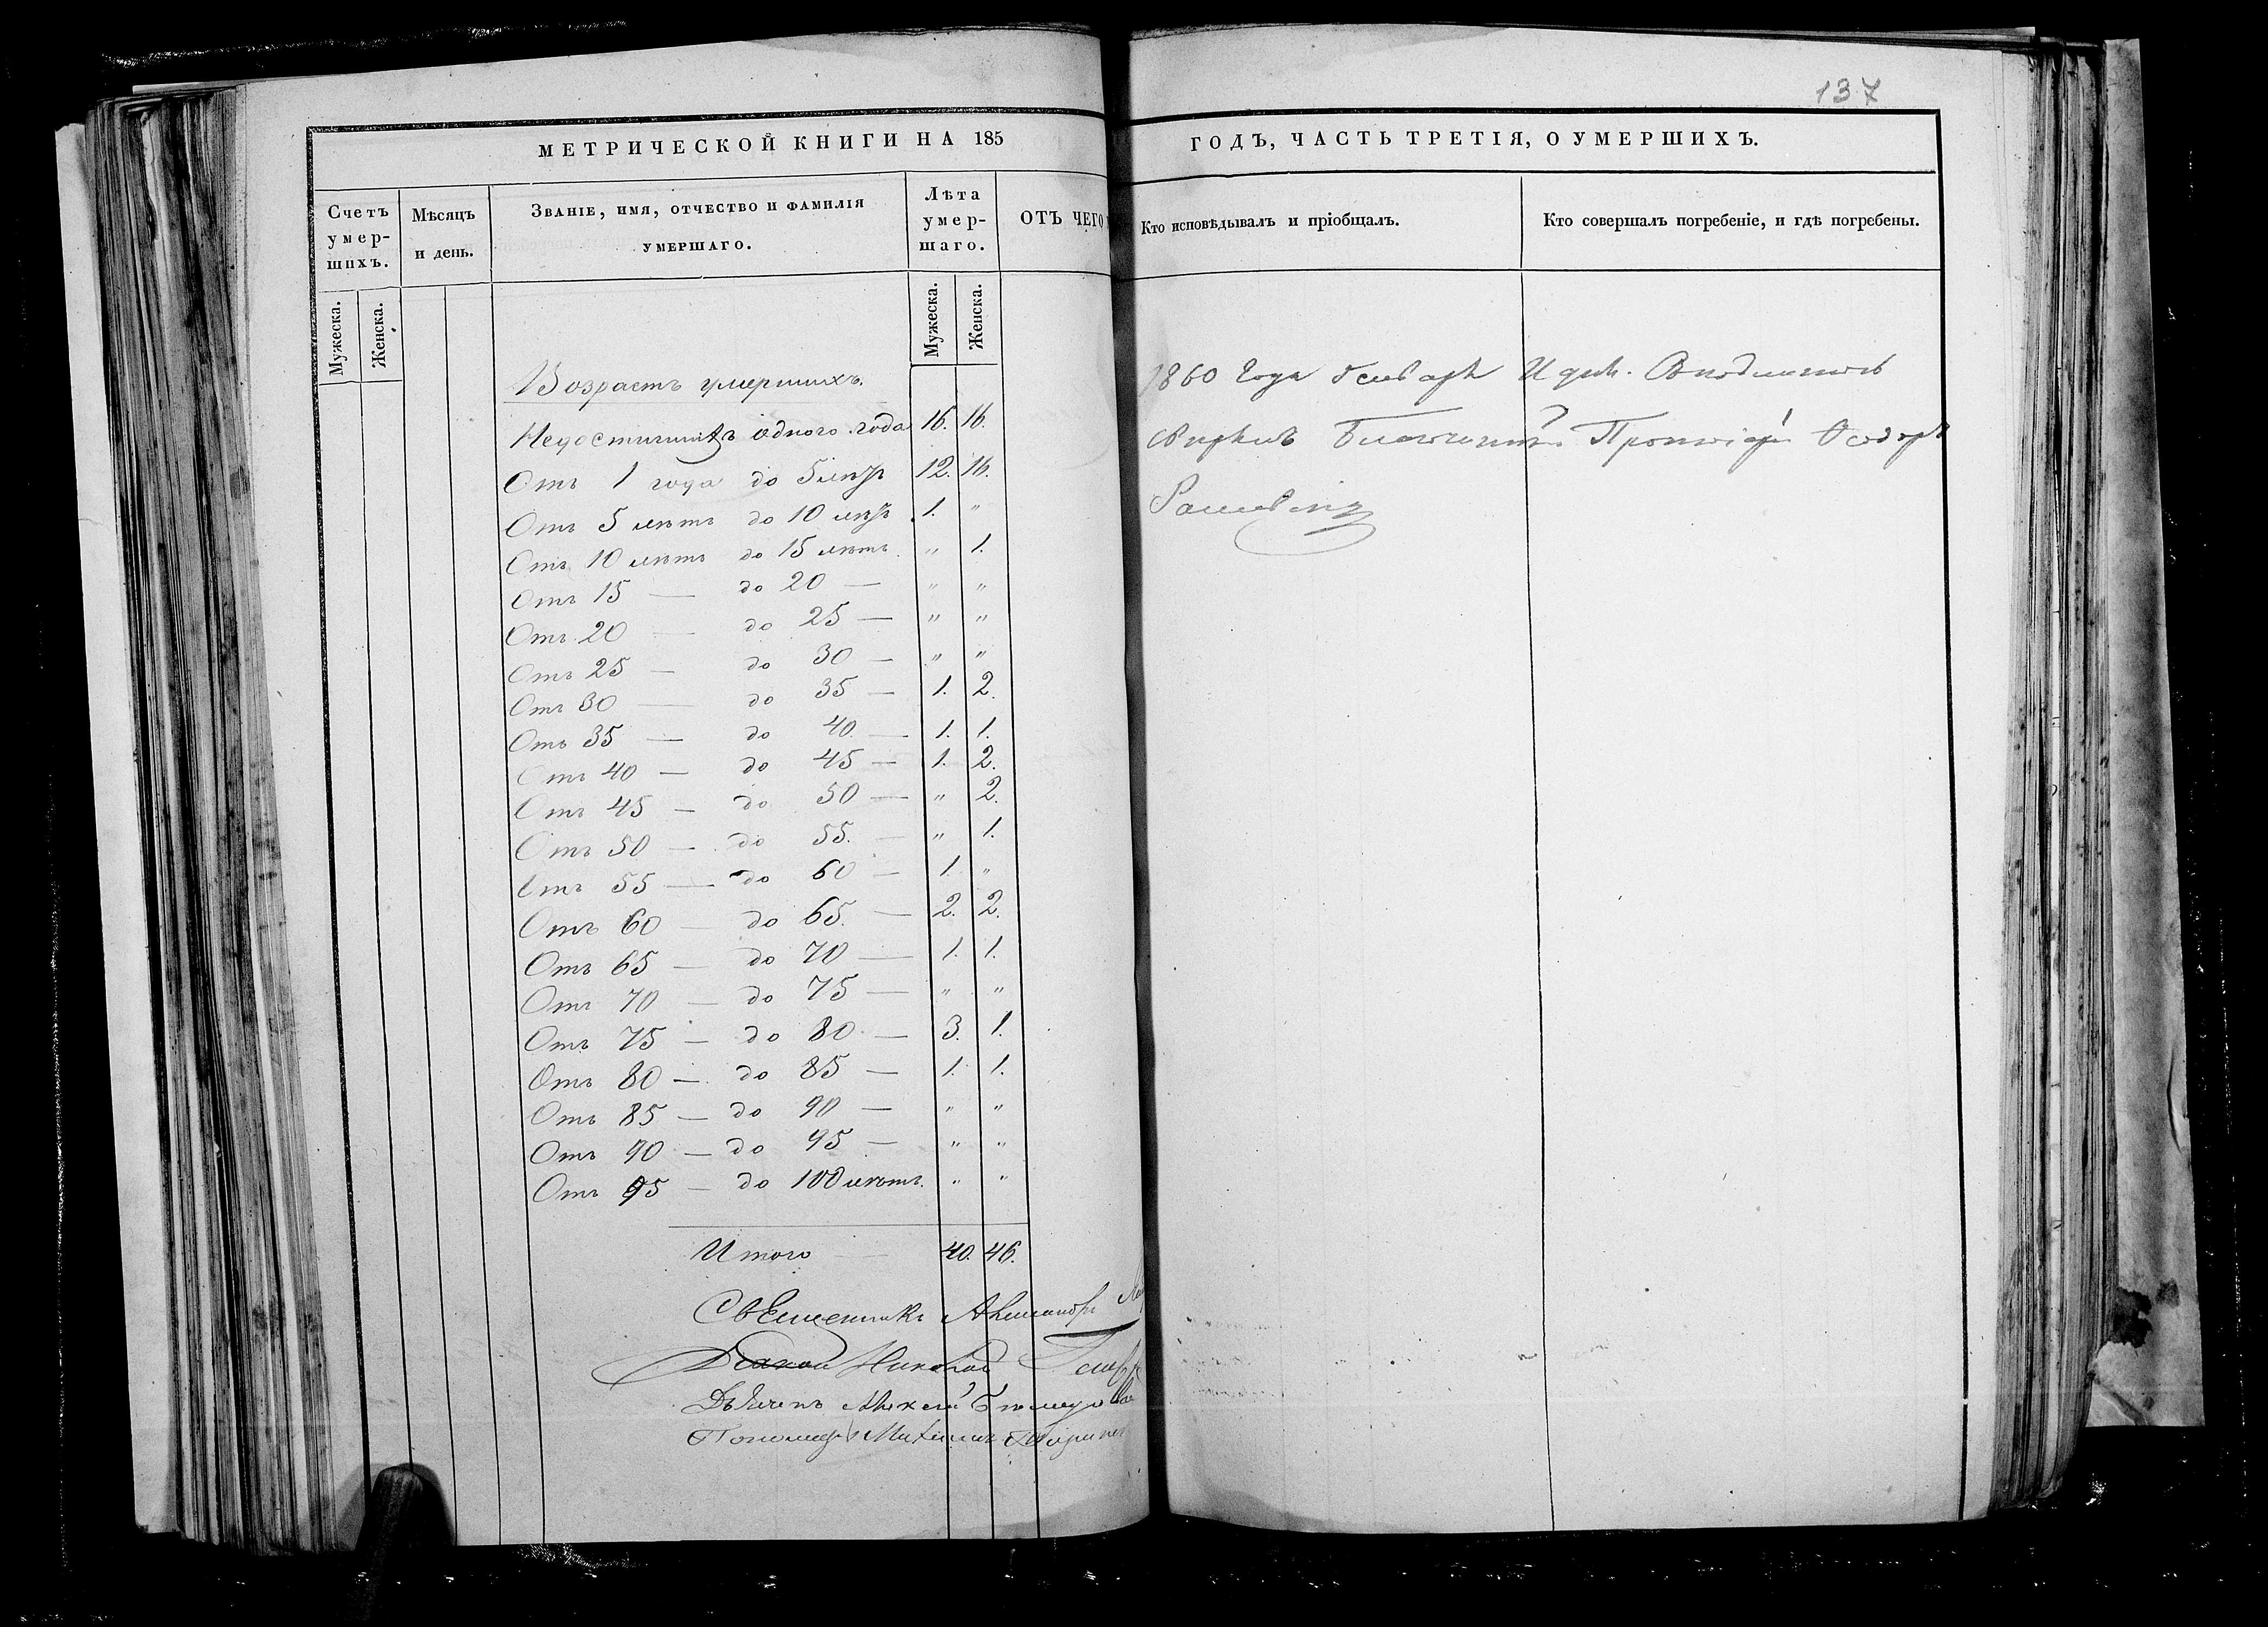 137
МЕТРИЧЕСКОЙ КНИГИ НА 185
ГОДЪ, ЧАСТЬ ТРЕТІЯ, О УМЕРШИХЪ.
Счетъ умер-шихъ.
Мѣсяцъ и день.
Званіе, имя, отчество и фамилія умершаго.
Лѣта умер-шаго.
ОТЪ ЧЕГО
Кто исповѣдывалъ и пріобщалъ.
Кто совершалъ погребеніе, и гдѣ погребены.
Мужеска.
Женска.
Мужеска.
Женска.
Возрастъ умершихъ.
Недостигшихъ одного года 16. 16.
Отъ 1 года до 5 лѣтъ 12. 16.
Отъ 5 лѣтъ до 10 лѣтъ 1. "
Отъ 10 лѣтъ до 15 лѣтъ " 1.
Отъ 15 — до 20 — " "
Отъ 20 — до 25 — " "
Отъ 25 — до 30 — " "
Отъ 30 — до 35 — 1. 2.
Отъ 35 — до 40. — 1. 1.
Отъ 40 — до 45 — 1. 2.
Отъ 45 — до 50 — " 2.
Отъ 50 — до 55. — " 1.
Отъ 55 — до 60 — 1. "
Отъ 60 — до 65. — 2. 2.
Отъ 65 — до 70 — 1. 1.
Отъ 70 — до 75 — " "
Отъ 75 — до 80 — 3. 1.
Отъ 80 — до 85 — 1. 1.
Отъ 85 — до 90 — " "
Отъ 90 — до 95 — " "
Отъ 95 — до 100 лѣтъ. " "
Итого — 40. 46.
Священникъ
Николай
Дьячекъ Алексей
Пономарь Михаилъ
1860 Года Генваря И дня. Съ подлиннымъ
свѣрялъ Благочинный Протоіерей Ѳеодоръ